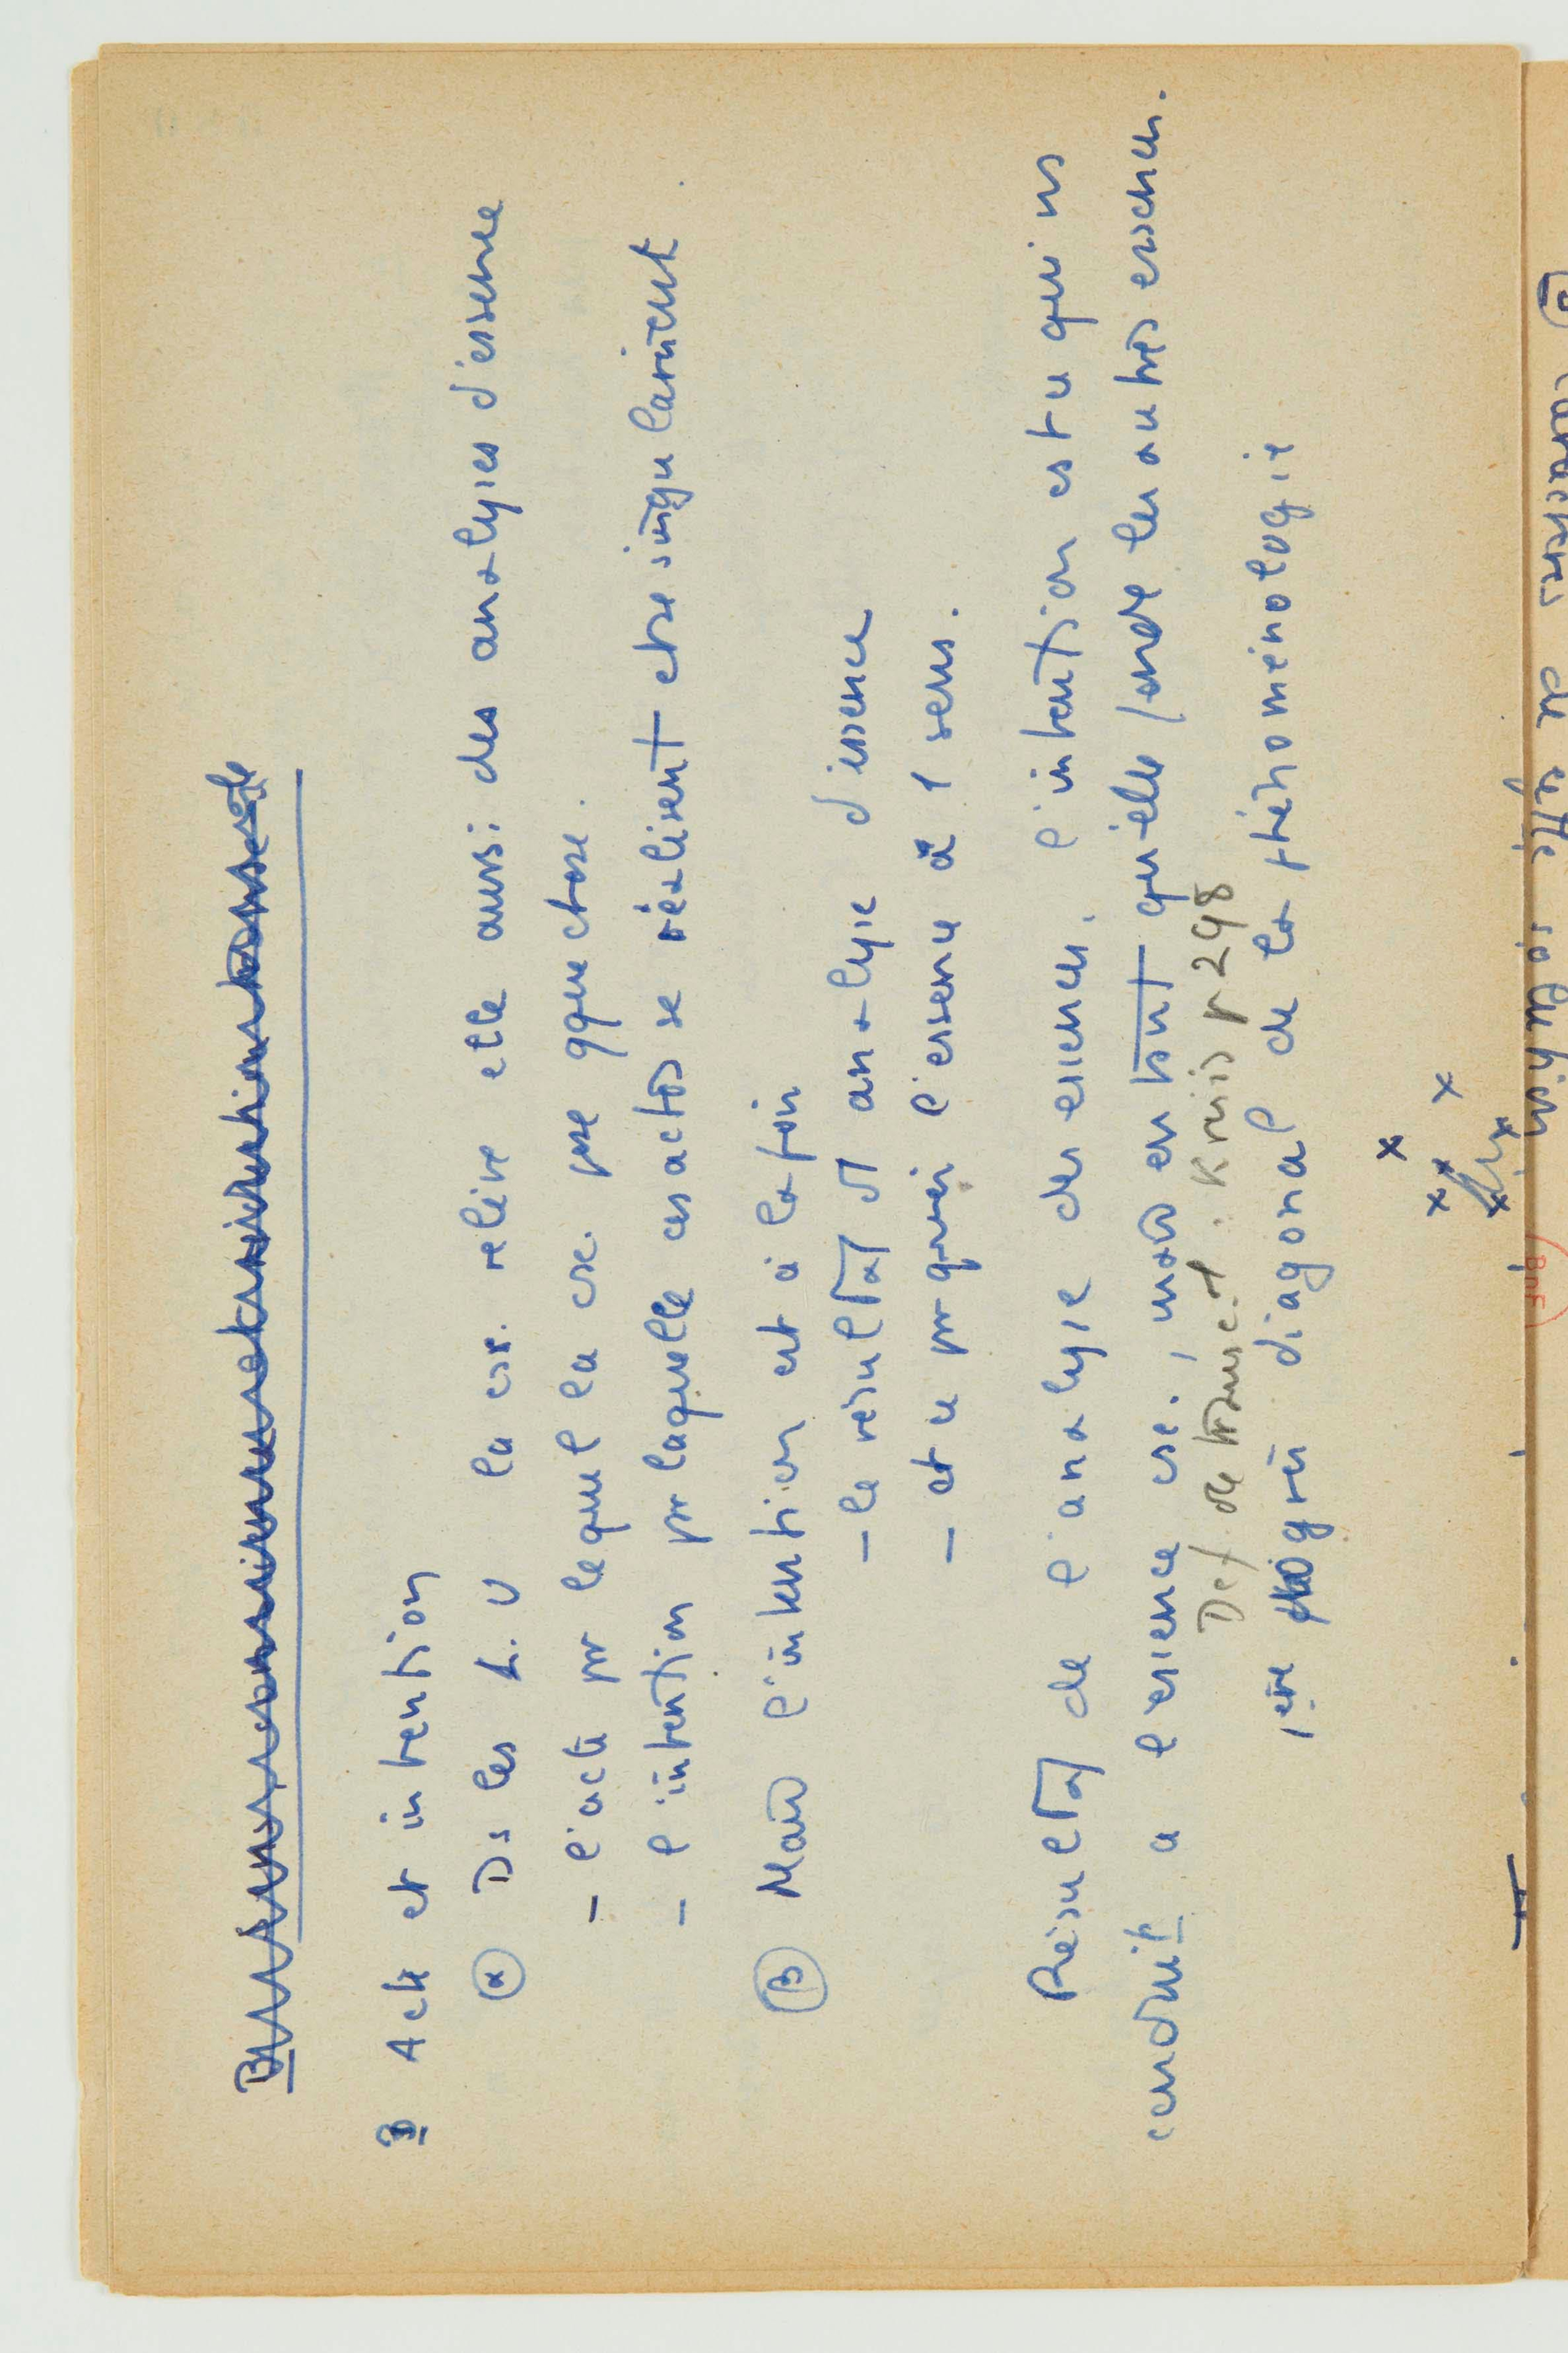 B
B Acte et intention
α Ds les L. U la csc. relève elle aussi des analyses d'essence
- l'acte pr lequel la csc. pse qque chose.
- l'intention pr laquelle ces actes se réalisent chse singulièrement
β Mais l'intention est à la fois
- le résultat d'1 analyse d'essence
- et ce pr quoi l'essence a 1 sens.
Résultat de l'analyse des essences, l'intention est ce qui ns
conduit à l'essence csc., mais en tant qu'elle fonde les autres essences.
Def de transcdt : Krisis p 298
1er degré diagonal de la phénoménologie